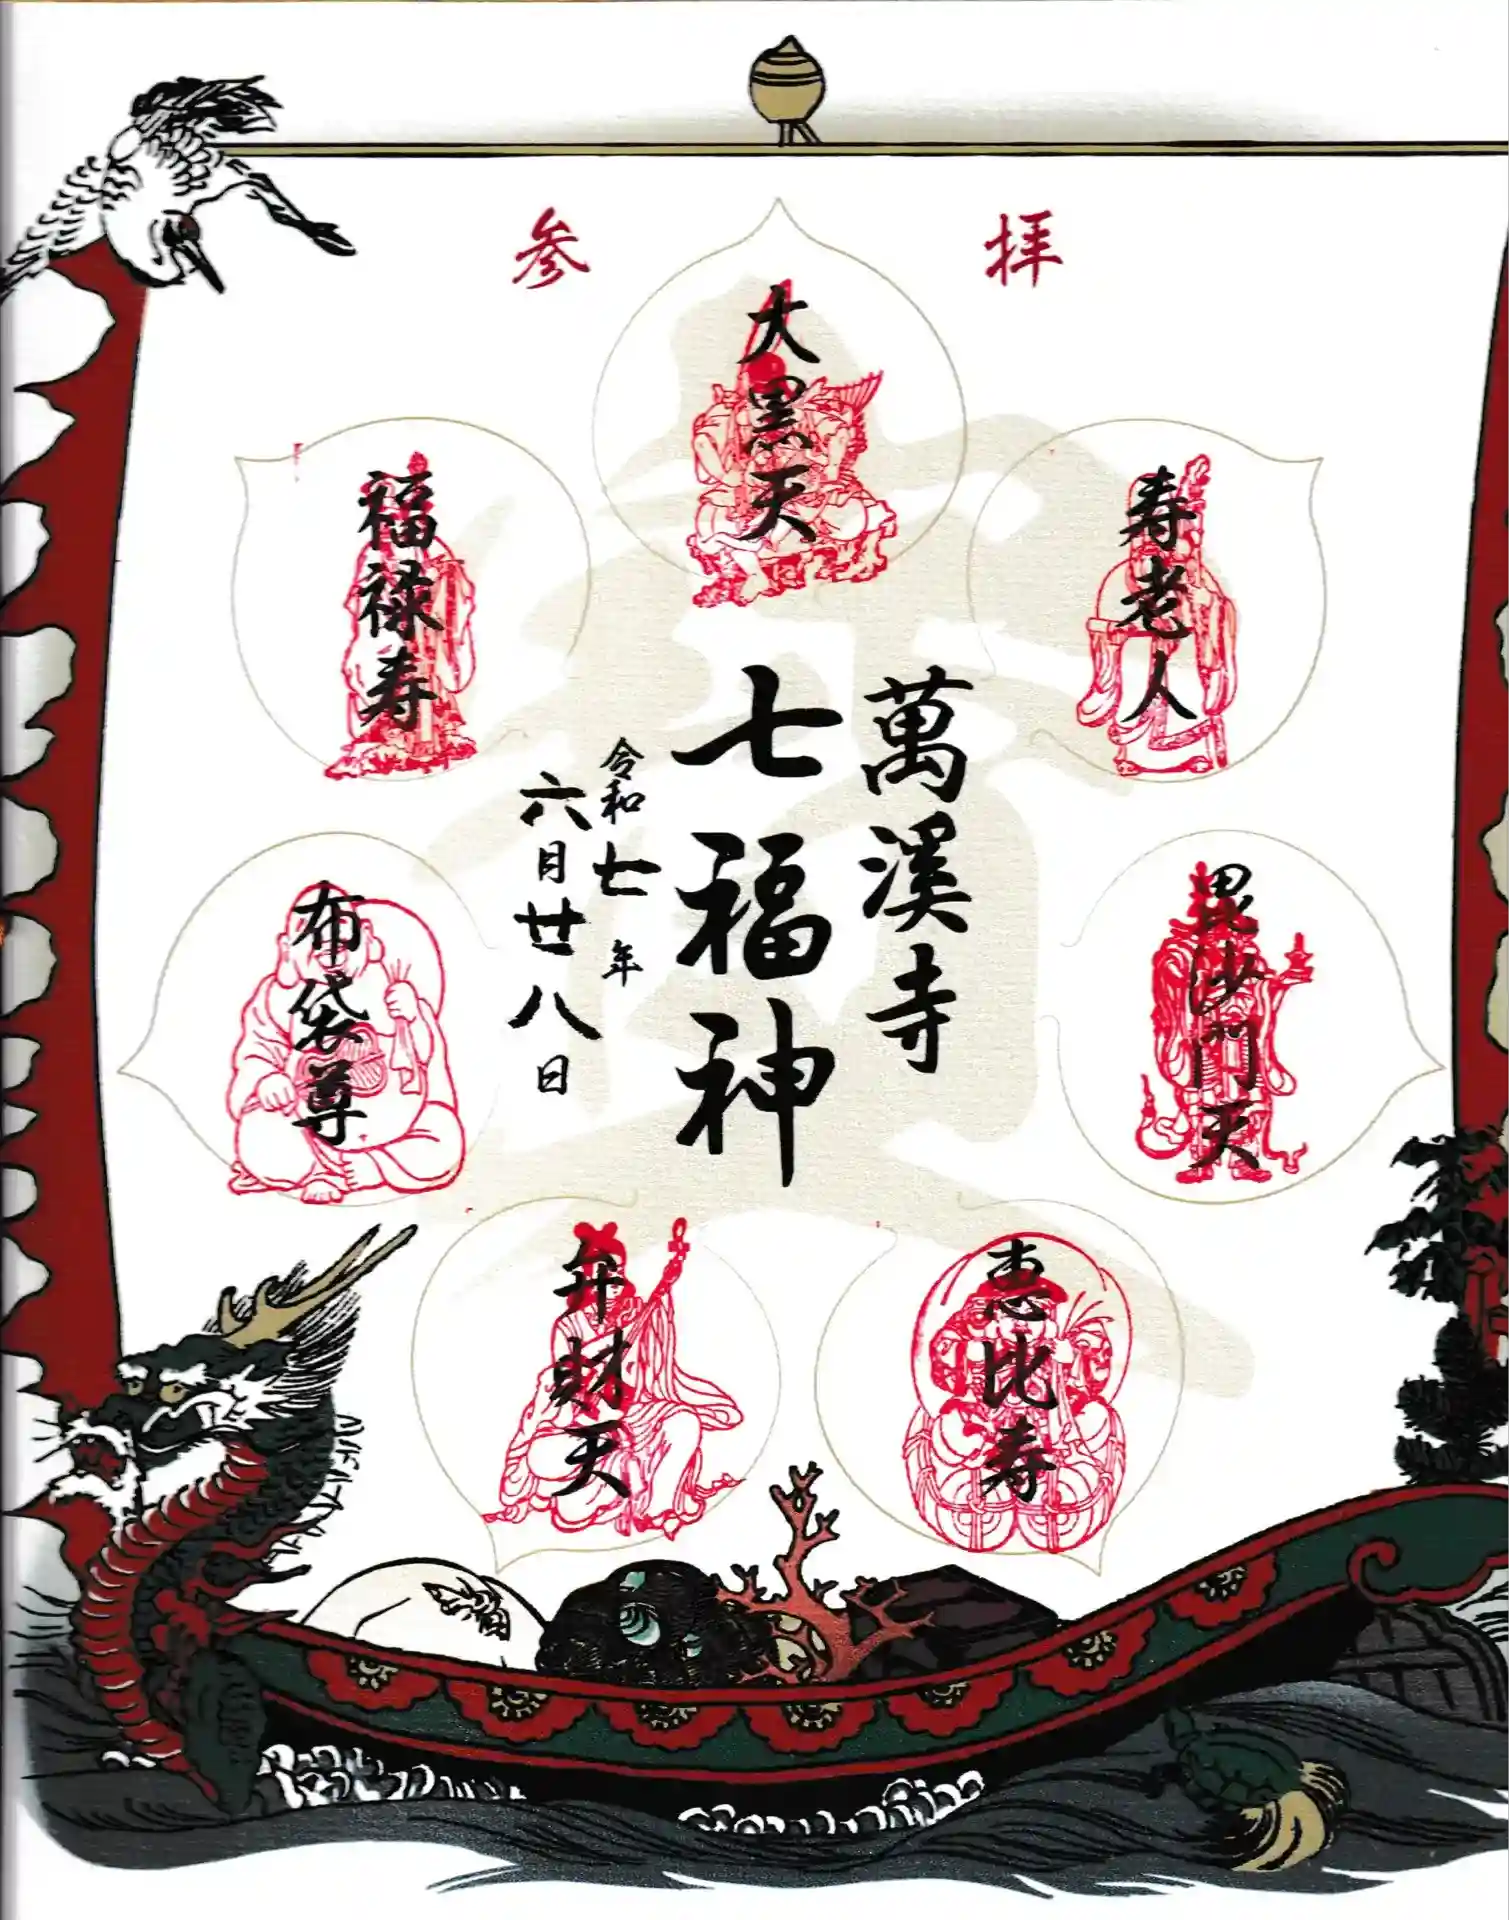 参拝
大黒天
寿老人
毘沙門天
恵比寿
弁財天
布袋尊
福禄寿
萬溪寺
七福神
令和七年
六月廿八日